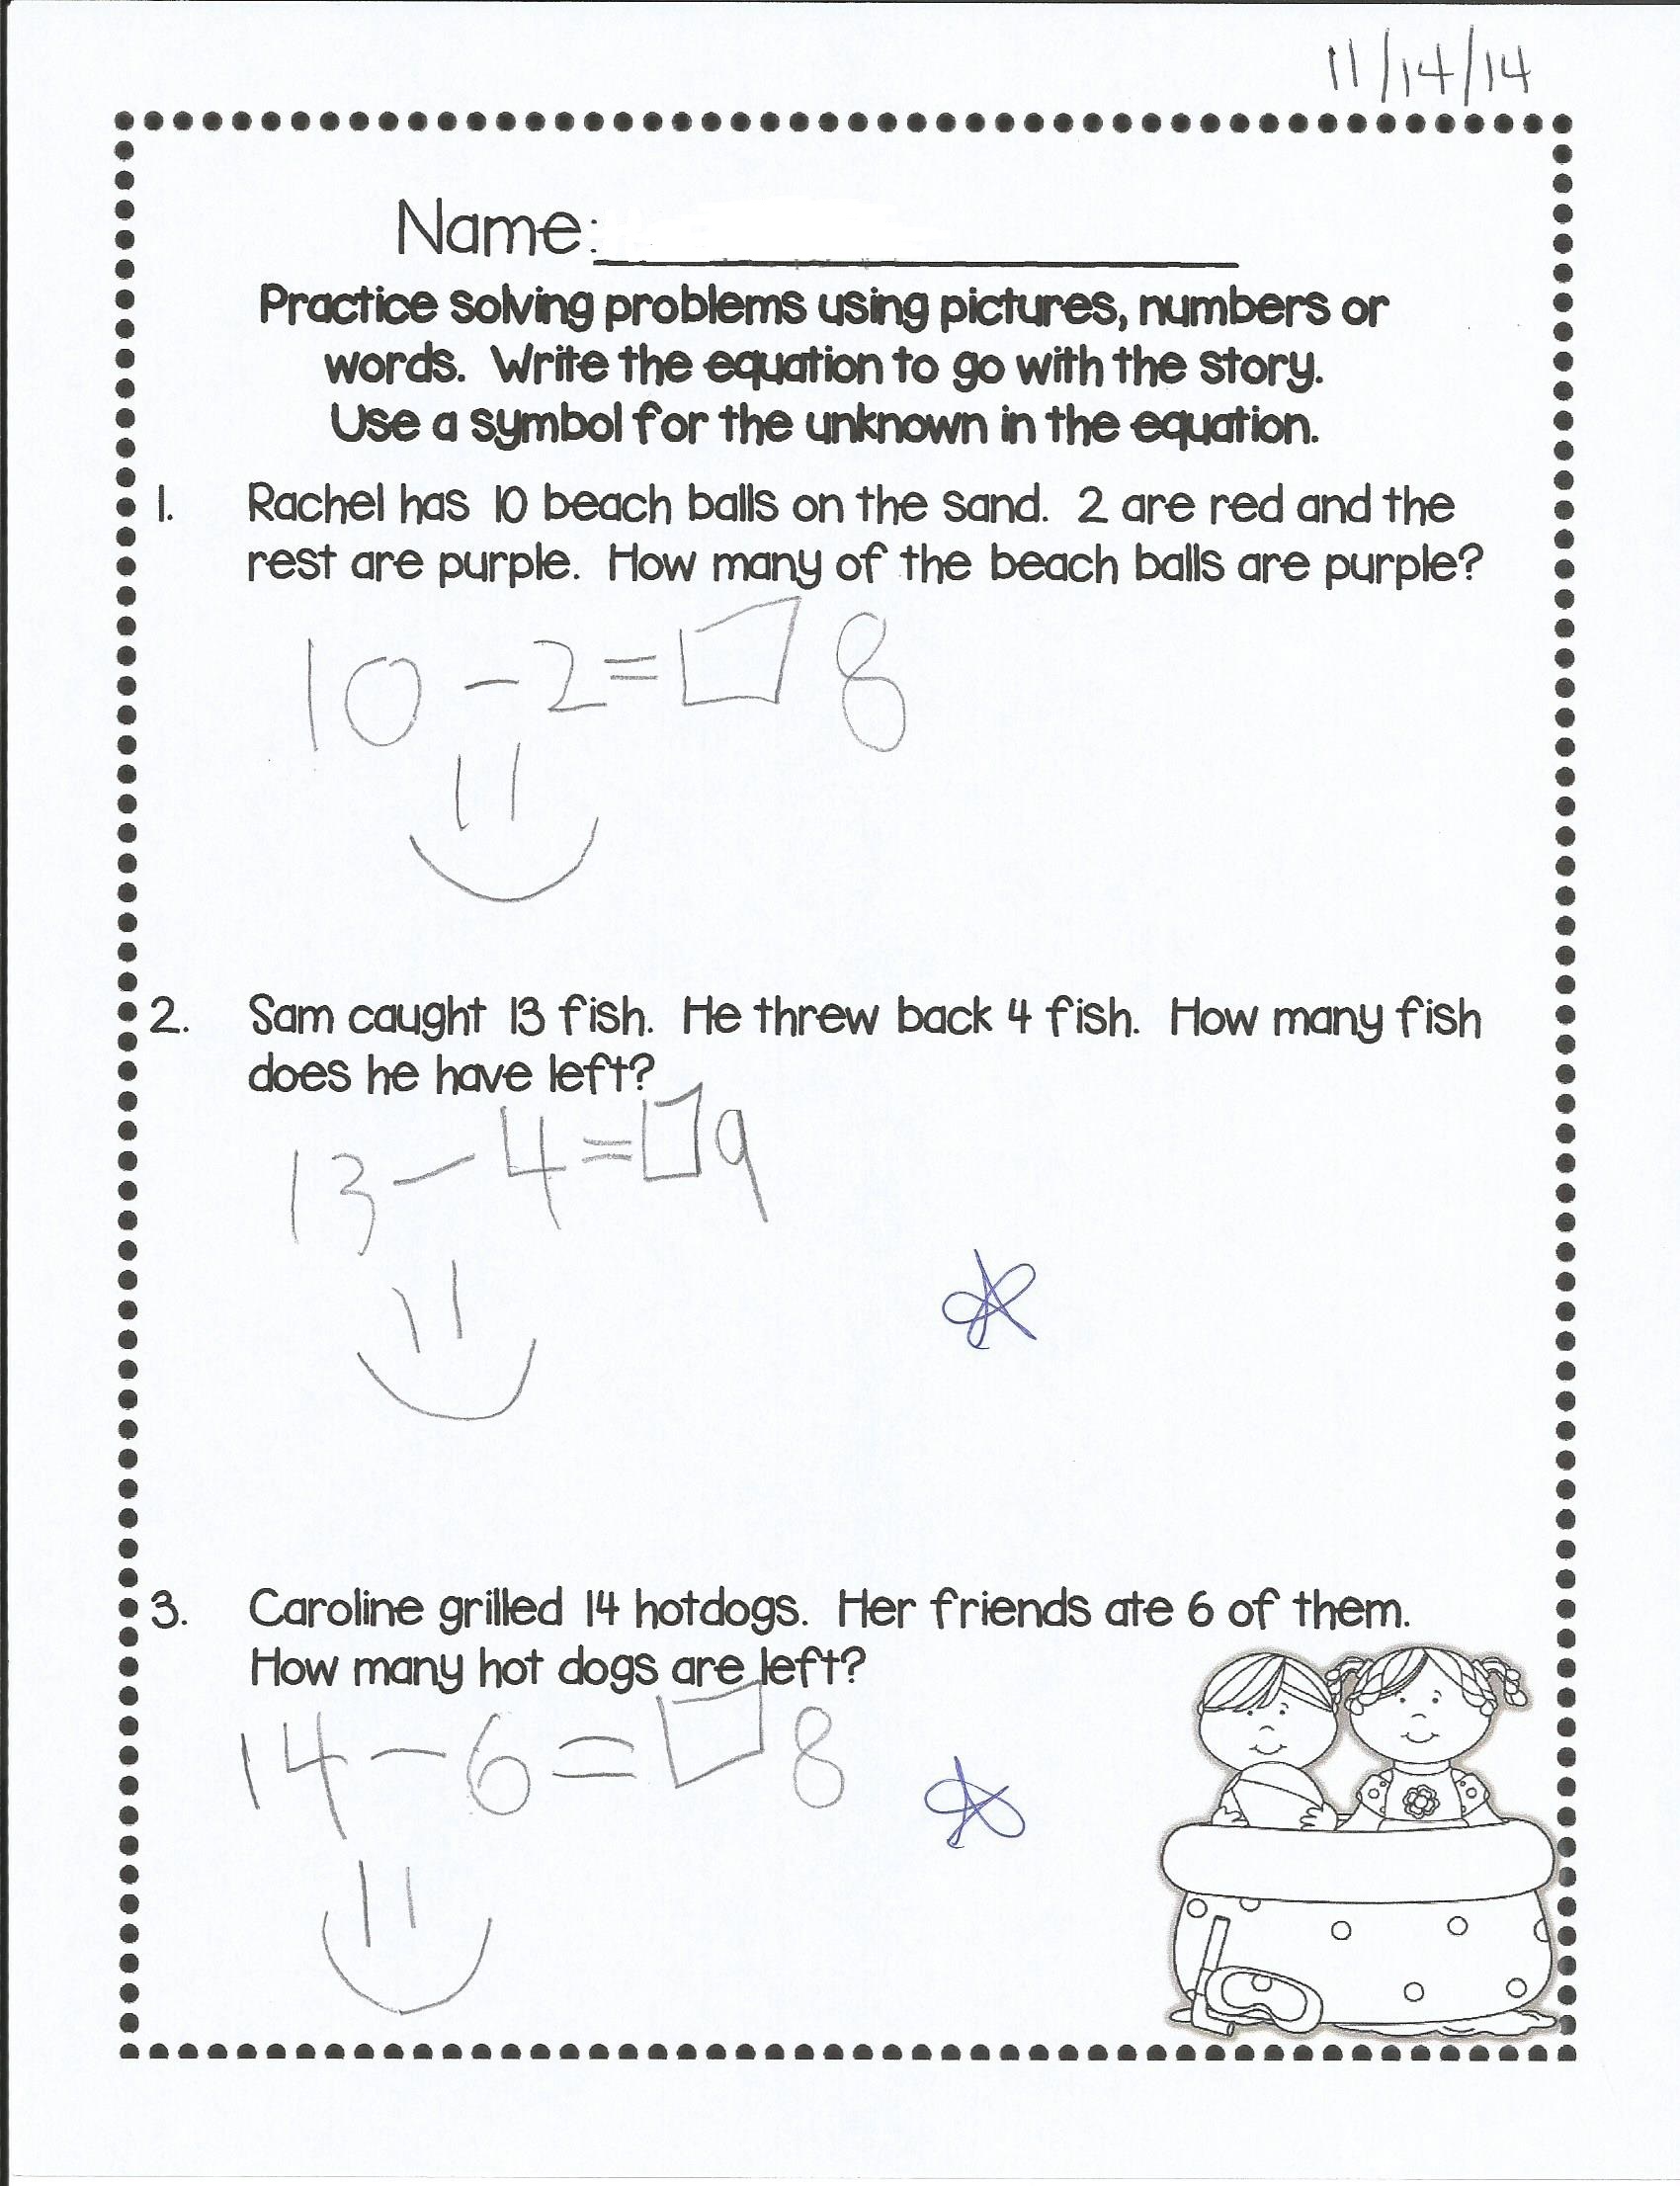 11/14/14
Name:
Practice solving problems using pictures, numbers or
words. Write the equation to go with the story.
Use a symbol for the unknown in the equation.
1. Rachel has 10 beach balls on the sand. 2 are red and the
rest are purple. How many of the beach balls are purple?
10 - 2 = □ 8
2. Sam caught 13 fish. He threw back 4 fish. How many fish
does he have left?
13 - 4 = □ 9
3. Caroline grilled 14 hotdogs. Her friends ate 6 of them.
How many hot dogs are left?
14 - 6 = □ 8